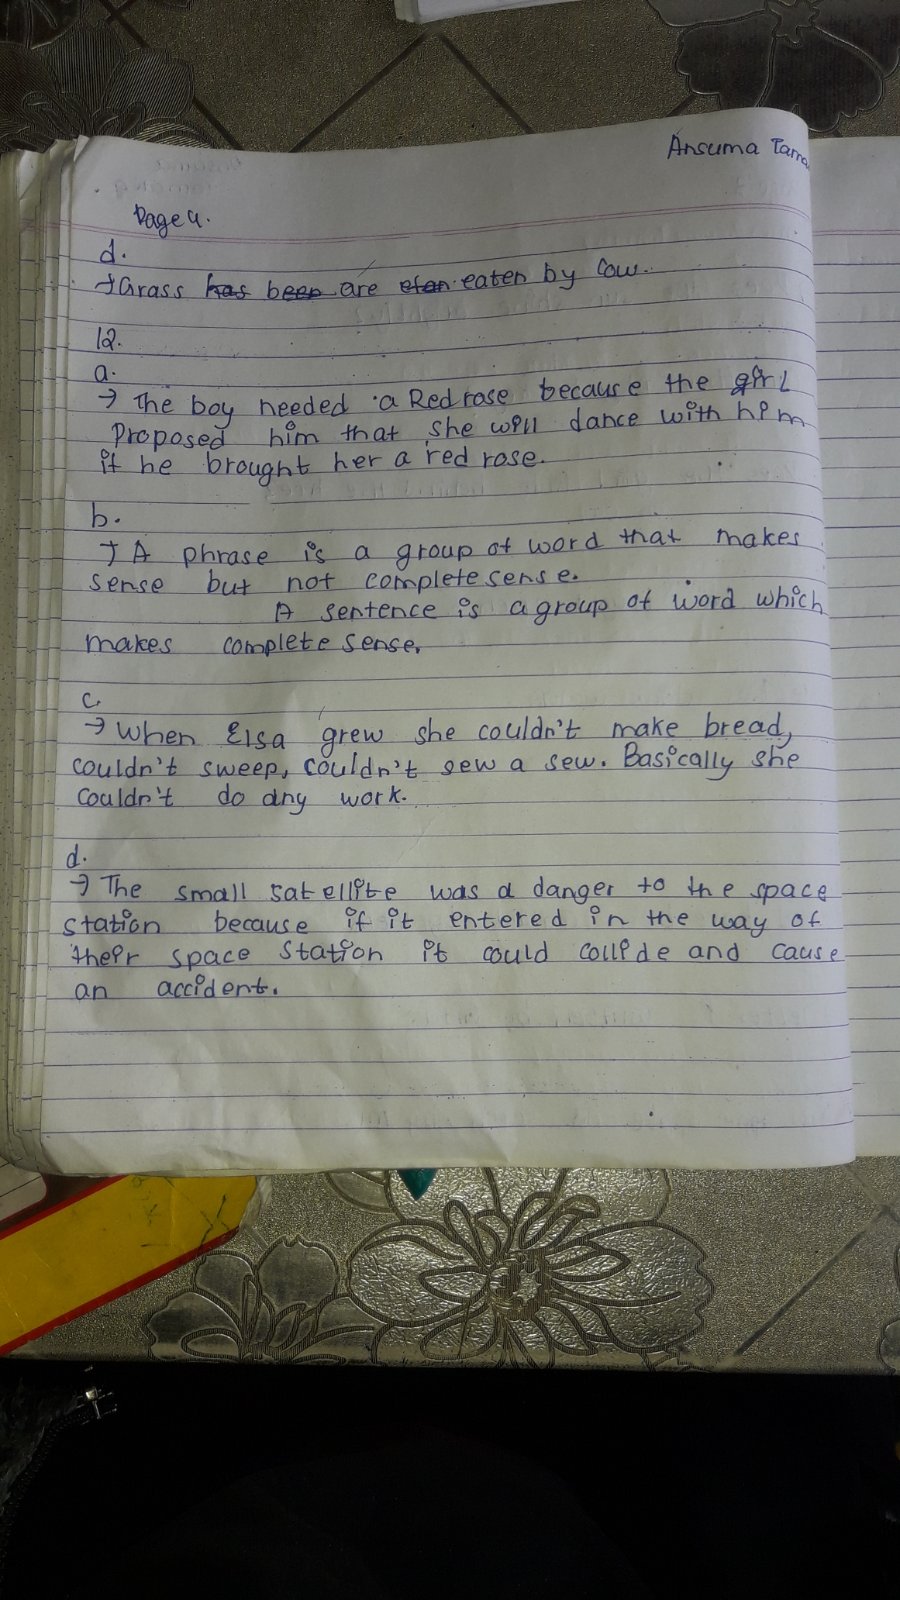 Ansuma Tama
Page 4.
d.
→ Grass has been are etan eaten by Cow.
12.
a.
→ The boy needed a Red rose because the girl
Proposed him that she will dance with him
if he brought her a red rose.
b.
→ A phrase is a group of word that makes
sense but not complete sense.
A sentence is a group of word which
makes complete sense.
c.
→ When Elsa grew she couldn't make bread,
couldn't sweep, couldn't sew a sew. Basically she
couldn't do any work.
d.
→ The small satellite was a danger to the space
station because if it entered in the way of
their space station it could collide and cause
an accident.